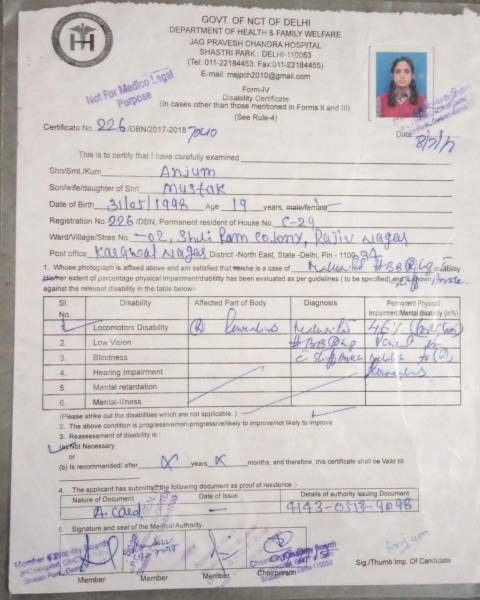 GOVT. OF NCT OF DELHI
DEPARTMENT OF HEALTH & FAMILY WELFARE
JAG PRAVESH CHANDRA HOSPITAL
SHASTRI PARK : DELHI-110053
(Tel: 011-22184453: Fax:011-22184455)
E-mail: msjpch2010@gmail.com
Not For Medico Legal
Purpose
Form-IV
Disability Certificate
(In cases other than those mentioned in Forms II and III)
(See Rule-4)
Certificate No. 226 /DBN/2017-2018
Date:
This is to certify that I have carefully examined
Shri/Smt./Kum. Anjum
Son/wife/daughter of Shri Mustak
Date of Birth 31/05/1998 Age 19 years, male/female
Registration No. 226 /DBN, Permanent resident of House No. C-29
Ward/Village/Stree No. -02, Shri Ram Colony, Rajiv Nagar
Post office Karawal Nagar District -North East, State -Delhi, Pin - 110094
1. Whose photograph is affixed above and am satisfied that he/she is a case of disability
His/her extent of percentage physical impairment/disability has been evaluated as per guidelines ( to be specified) and is shown
against the relevant disability in the table below:-
Sl. No. Disability Affected Part of Body Diagnosis Permanent Physical Impairment/Mental disability (in%)
1. Locomotors Disability (R) 46%
2. Low Vision
3. Blindness
4. Hearing Impairment
5. Mental retardation
6. Mental-illness
(Please strike out the disabilities which are not applicable. )
2. The above condition is progressive/non-progressive/likely to improve/not likely to improve
3. Reassessment of disability is :
(a) Not Necessary.
or
(b) Is recommended/ after years months, and therefore, this certificate shall be Valid till
4. The applicant has submitted the following document as proof of residence :-
Nature of Document Date of Issue Details of authority issuing Document
A. Card — 4143-0513-9698
5. Signature and seal of the Medical Authority.
Anjum
Member Member Member Chairperson Sig./Thumb Imp. Of Candidate